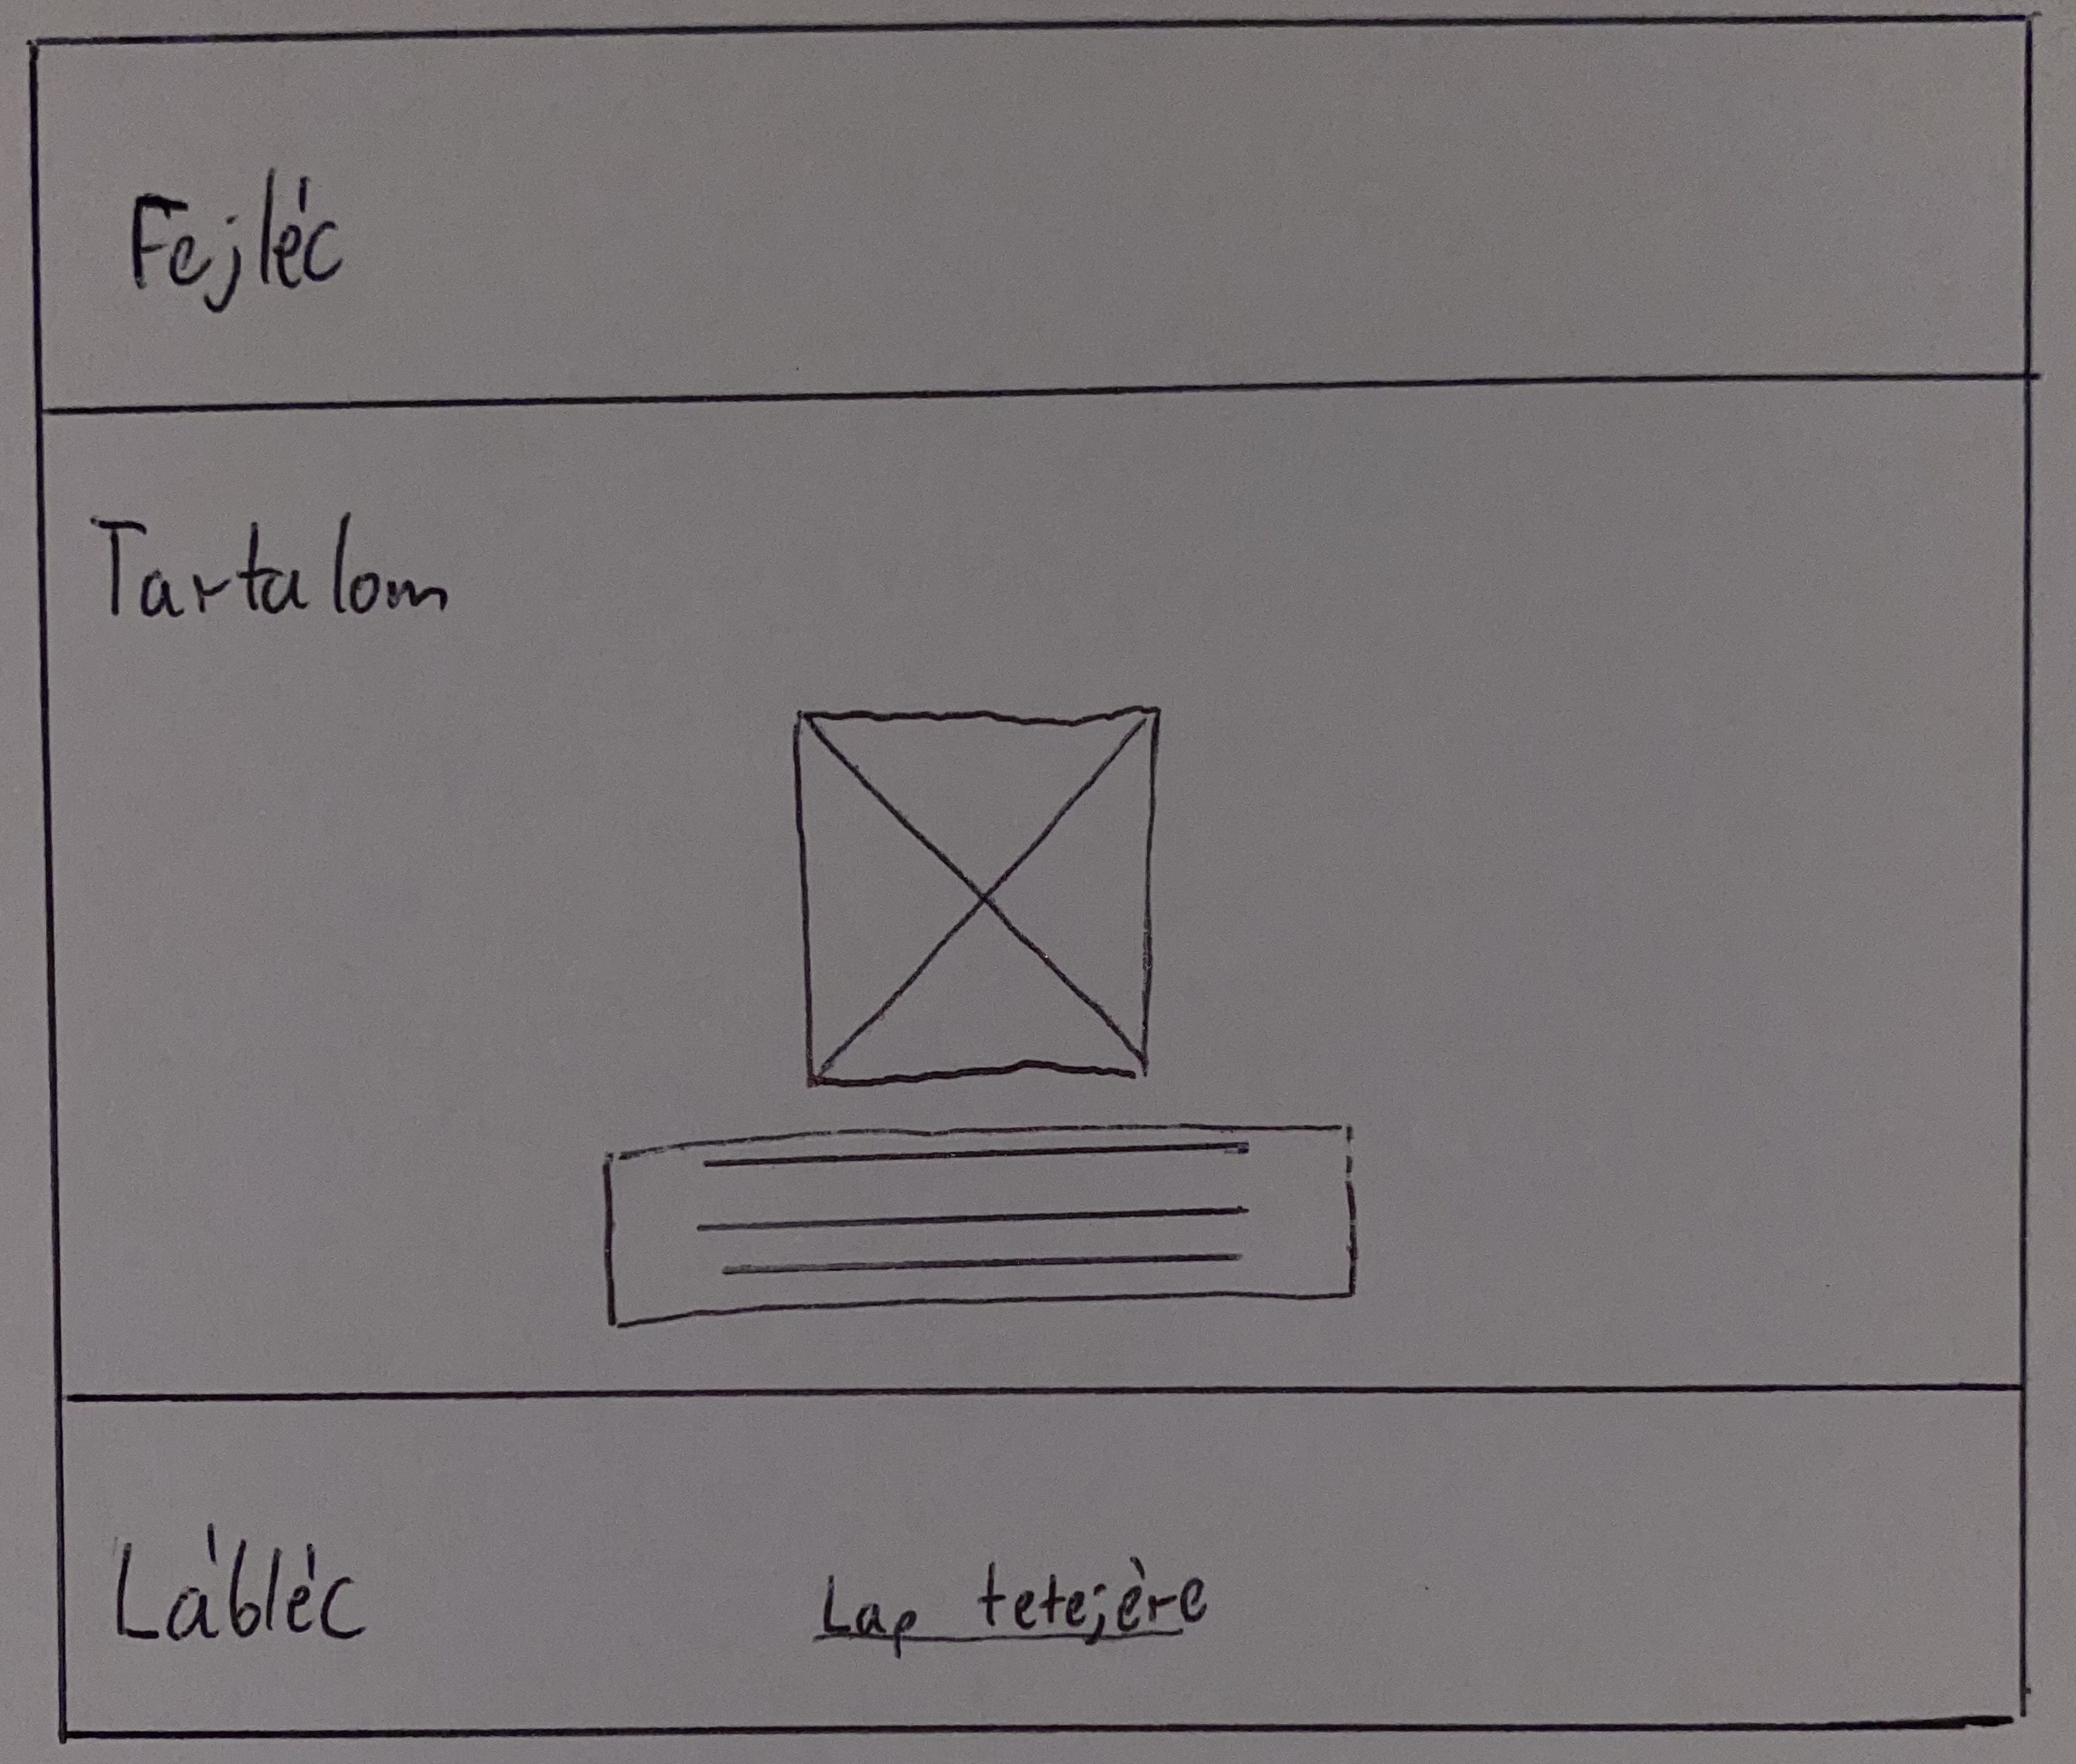 Fejléc
Tartalom
Lábléc
Lap tetejére